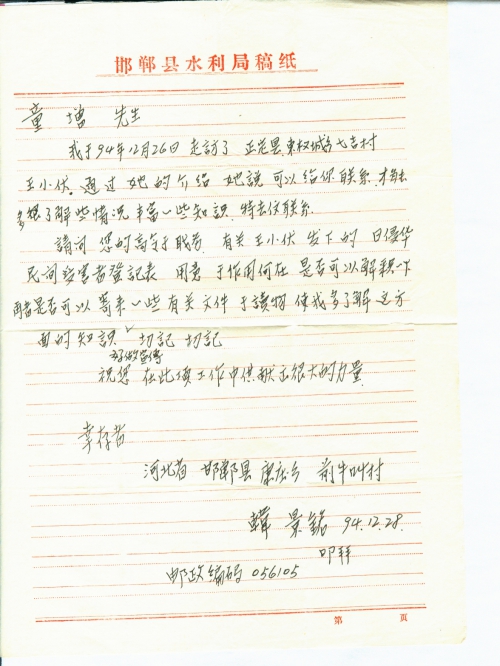 邯郸县水利局稿纸
童增 先生
我于94年12月26日走訪了 正定县東权城乡七吉村
王小伏。通过她的介绍 她說可以给你联系,
多想了解些情况 丰富一些知識 特去信联系
請问 您的高令于职务 有关王小伏发下的 日侵华
民间受害者登記表 用意于作用何在 是否可以解释一下
再者是否可以寄来一些有关文件于讀物 使我多了解这方
面的知識 切記 切記
多做宣傳
祝您 在此项工作中供献出很大的力量
幸存者
河北省 邯郸县 康庄乡 前牛叫村
韓景 94.12.28.
叩拜
邮政编码 056105
第 页